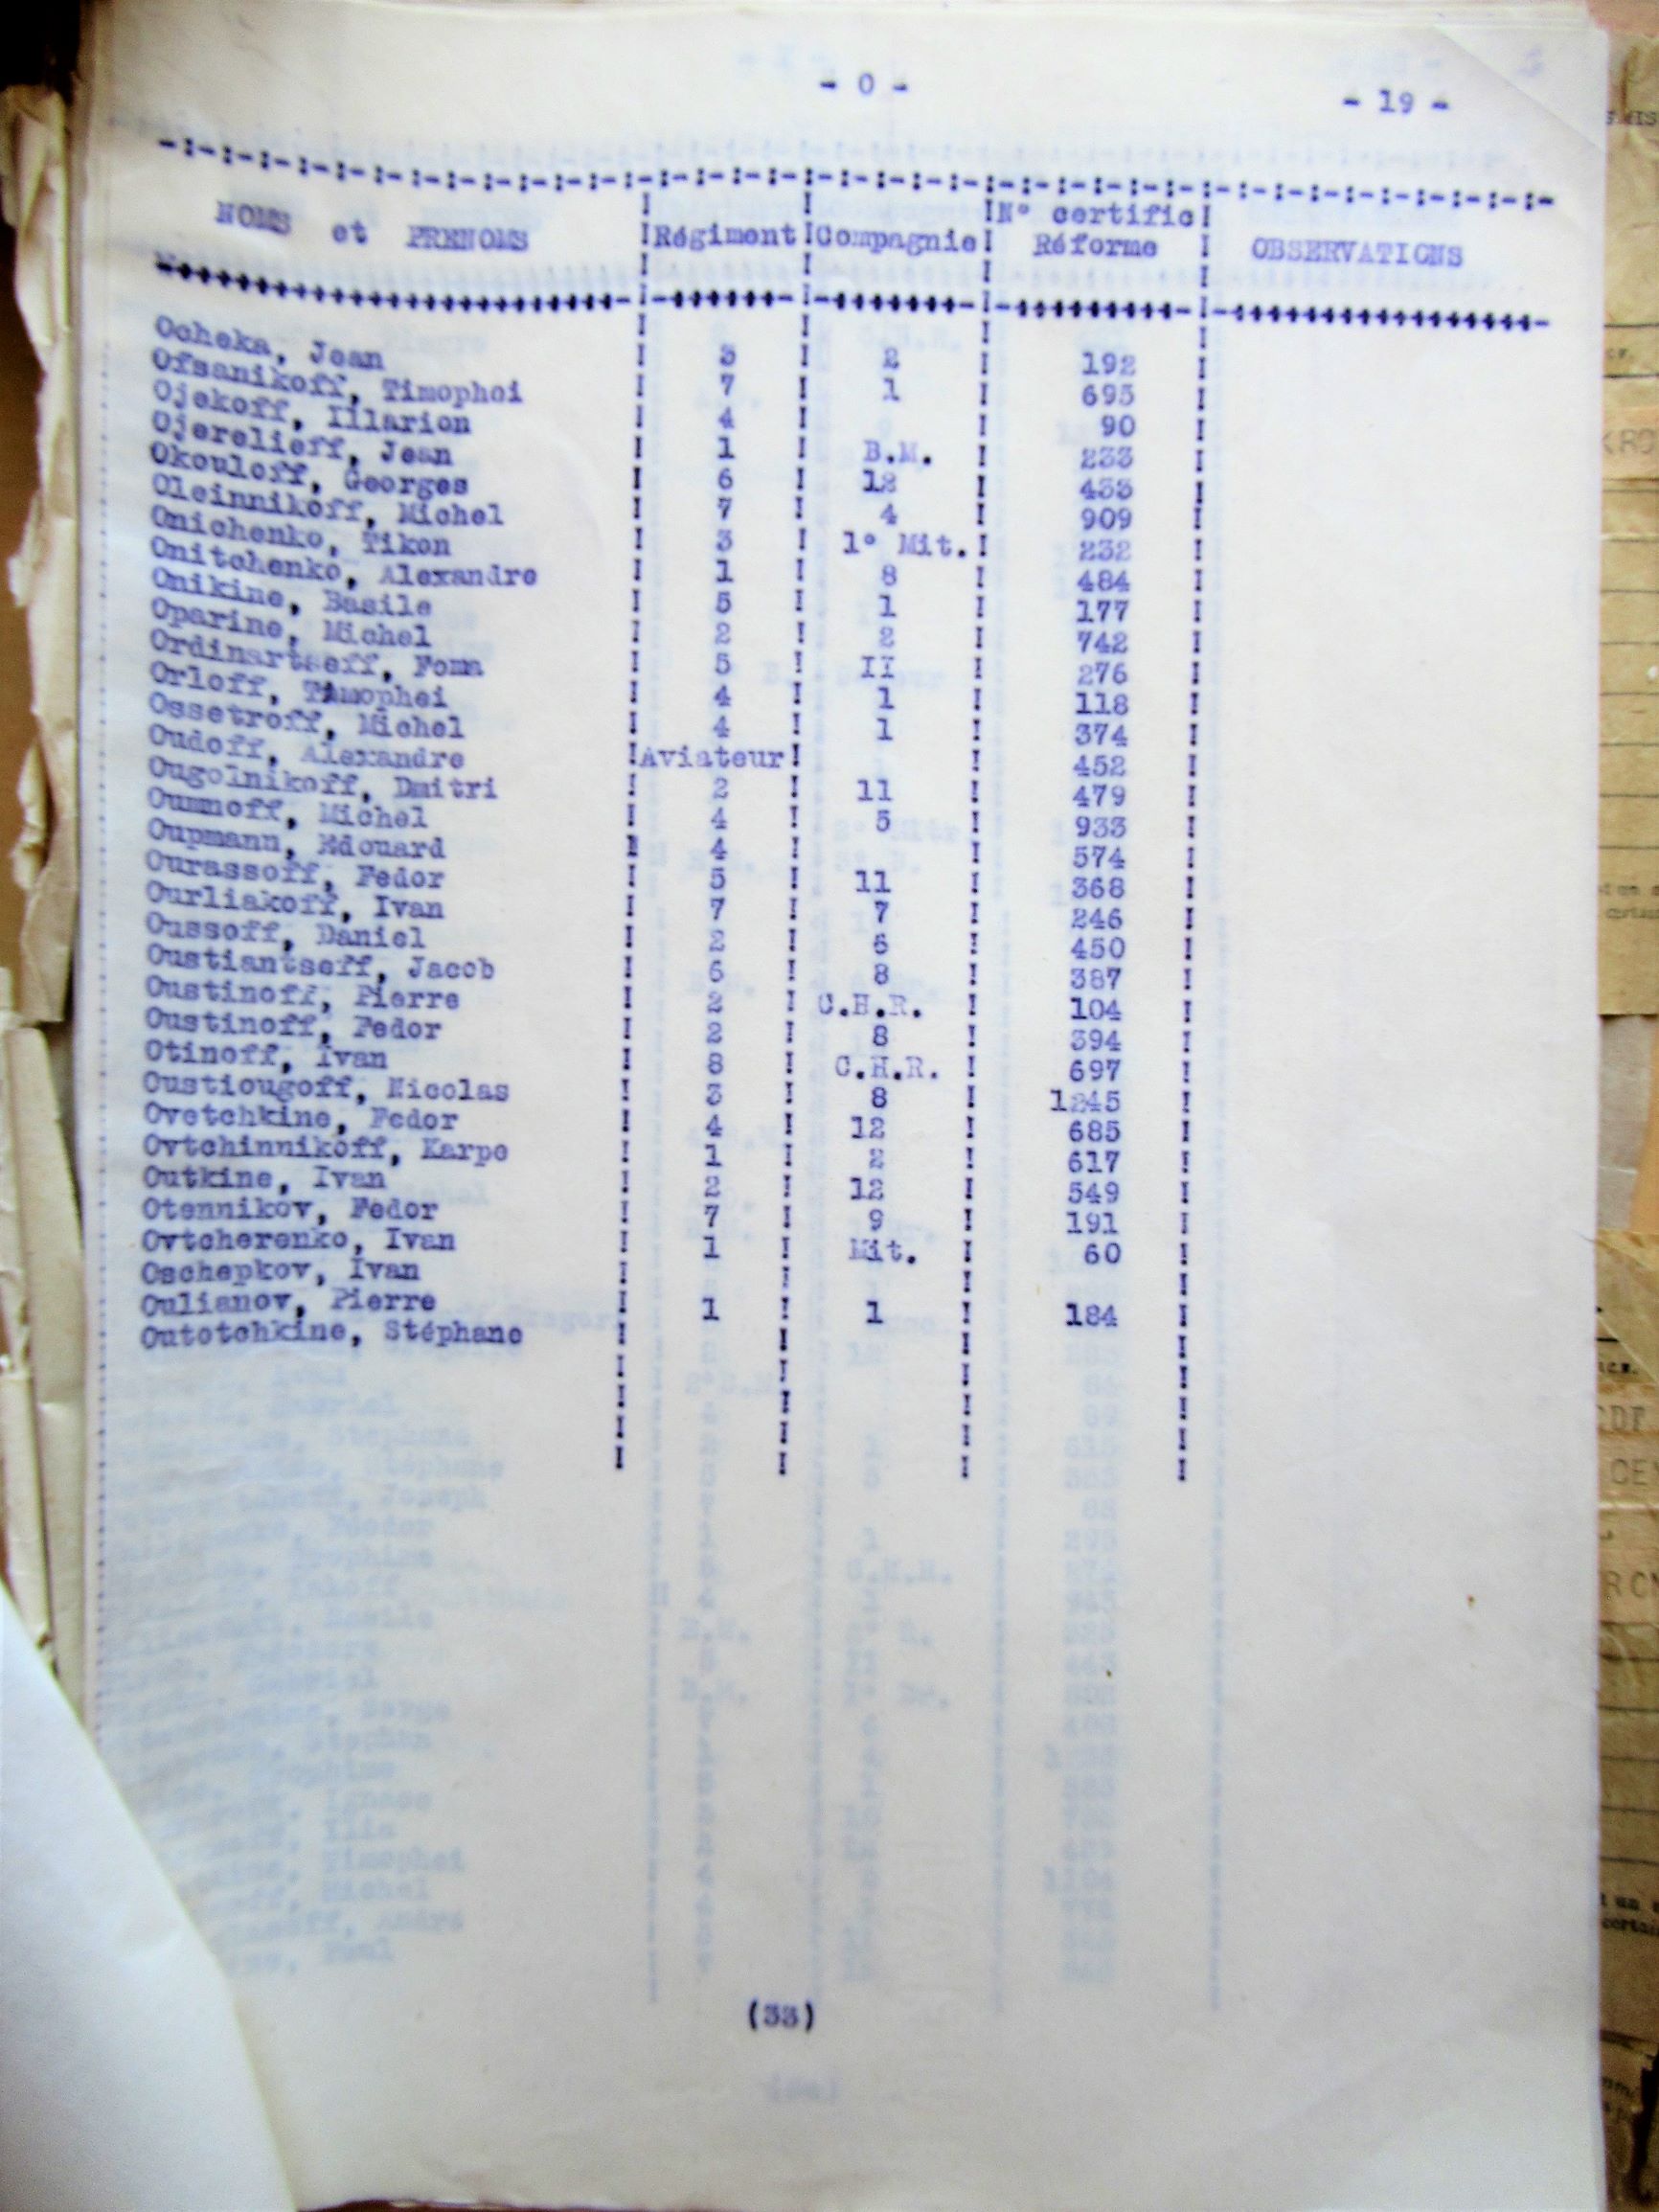 - O -
- 19 -
NOMS et PRENOMS Régiment Compagnie N° certific Réforme OBSERVATIONS
Ocheka, Jean 3 2 192
Ofsanikoff, Timophei 7 1 695
Ojekoff, Illarion 4 90
Ojerelieff, Jean 1 B.M. 233
Okouloff, Georges 6 12 433
Oleinnikoff, Michel 7 4 909
Onichenko, Tikon 3 1° Mit. 232
Onitchenko, Alexandre 1 8 484
Onikine, Basile 5 1 177
Oparine, Michel 2 2 742
Ordinartseff, Foma 5 II 276
Orloff, Timophei 4 1 118
Ossetroff, Michel 4 1 374
Oudoff, Alexandre Aviateur 452
Ougolnikoff, Dmitri 2 11 479
Oumnoff, Michel 4 5 933
Oupmann, Edouard 4 574
Ourassoff, Fedor 5 11 368
Ourliakoff, Ivan 7 7 246
Oussoff, Daniel 2 6 450
Oustiantseff, Jacob 6 8 387
Oustinoff, Pierre 2 C.H.R. 104
Oustinoff, Fedor 2 8 394
Otinoff, Ivan 8 C.H.R. 697
Oustiougoff, Nicolas 3 8 1245
Ovetchkine, Fedor 4 12 685
Ovtchinnikoff, Karpe 1 2 617
Outkine, Ivan 2 12 549
Otennikov, Fedor 7 9 191
Ovtcherenko, Ivan 1 Mit. 60
Oschepkov, Ivan
Oulianov, Pierre 1 1 184
Outotchkine, Stéphane
(33)